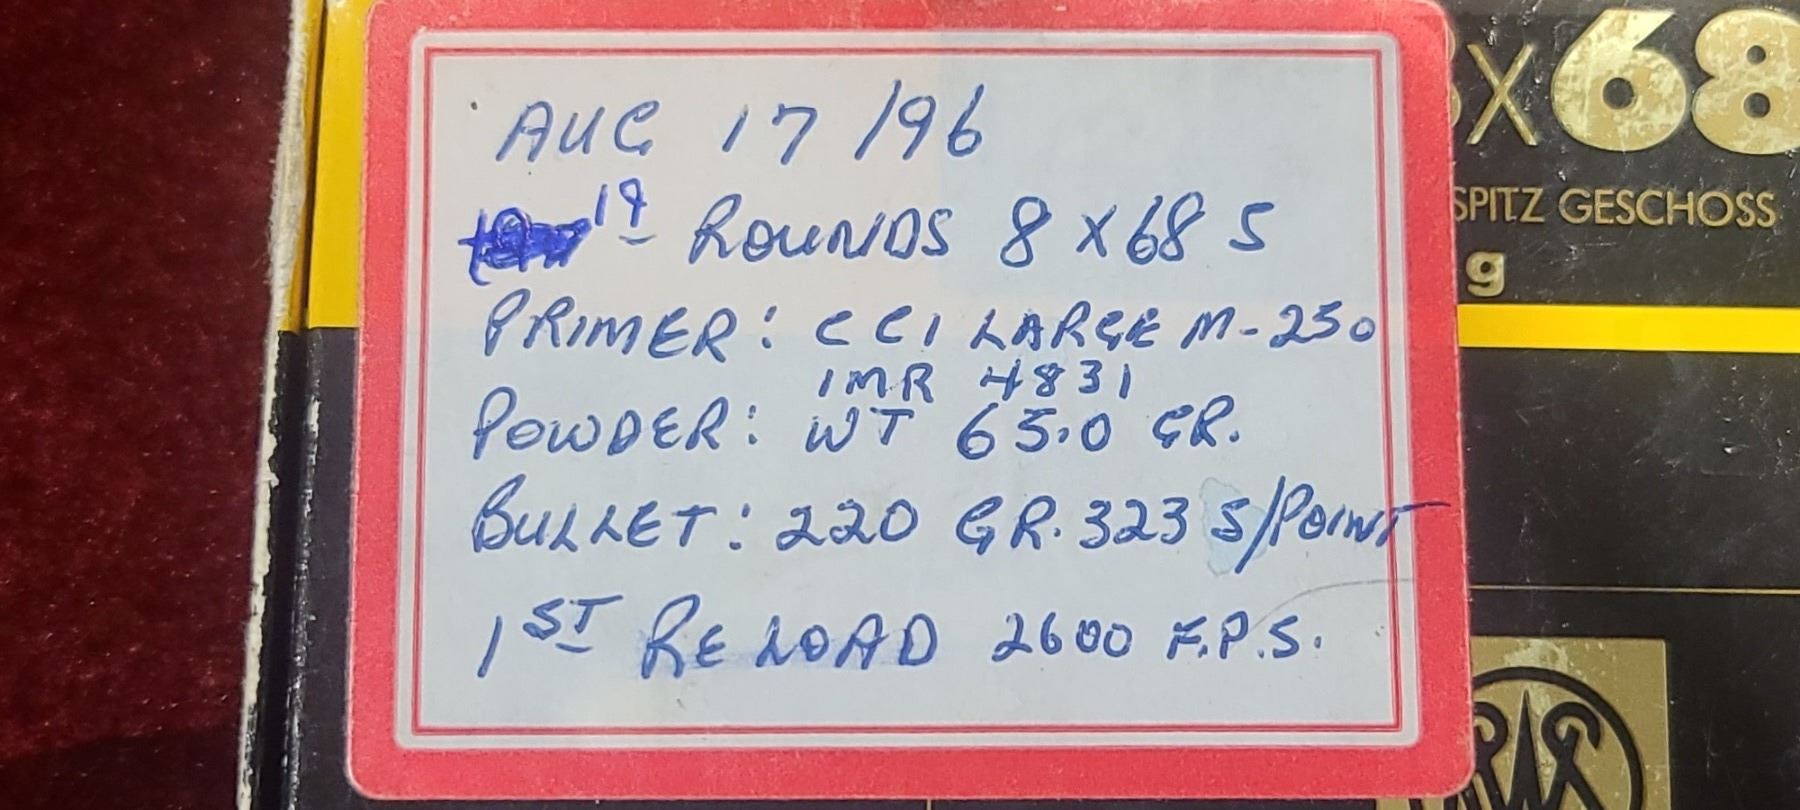 AUG 17/96
19 ROUNDS 8X68 S
PRIMER: CCI LARGE M-250
IMR 4831
POWDER: WT 65.0 GR.
BULLET: 220 GR. 323 S/POINT
1ST RELOAD 2600 F.P.S.
X68
SPITZ GESCHOSS
g
RWS